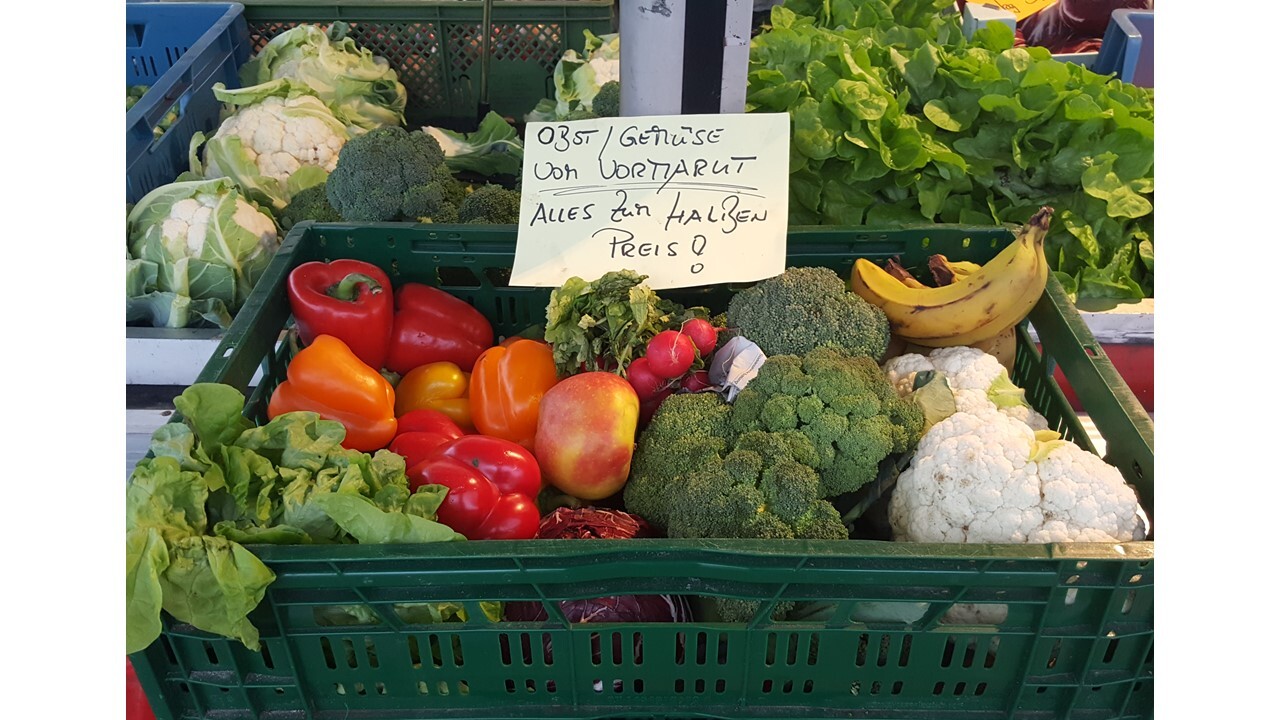 OBST / GEMÜSE
VOM VORMARKT
ALLES ZUM HALBEN
PREIS!